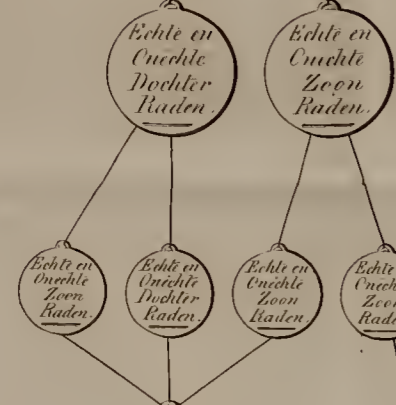 Echte en
Onechte
Dochter
Raden.
Echte en
Onechte
Zoon
Raden.
Echte en
Onechte
Zoon
Raden.
Echte en
Onechte
Dochter
Raden.
Echte en
Onechte
Zoon
Raden.
Echte
Zoo